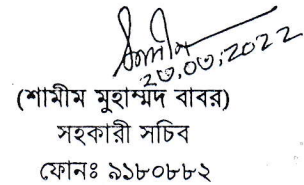 ২৩.০৩.২০২২
(শামীম মুহাম্মদ বাবর)
সহকারী সচিব
ফোনঃ ৯১৮০৮৮২